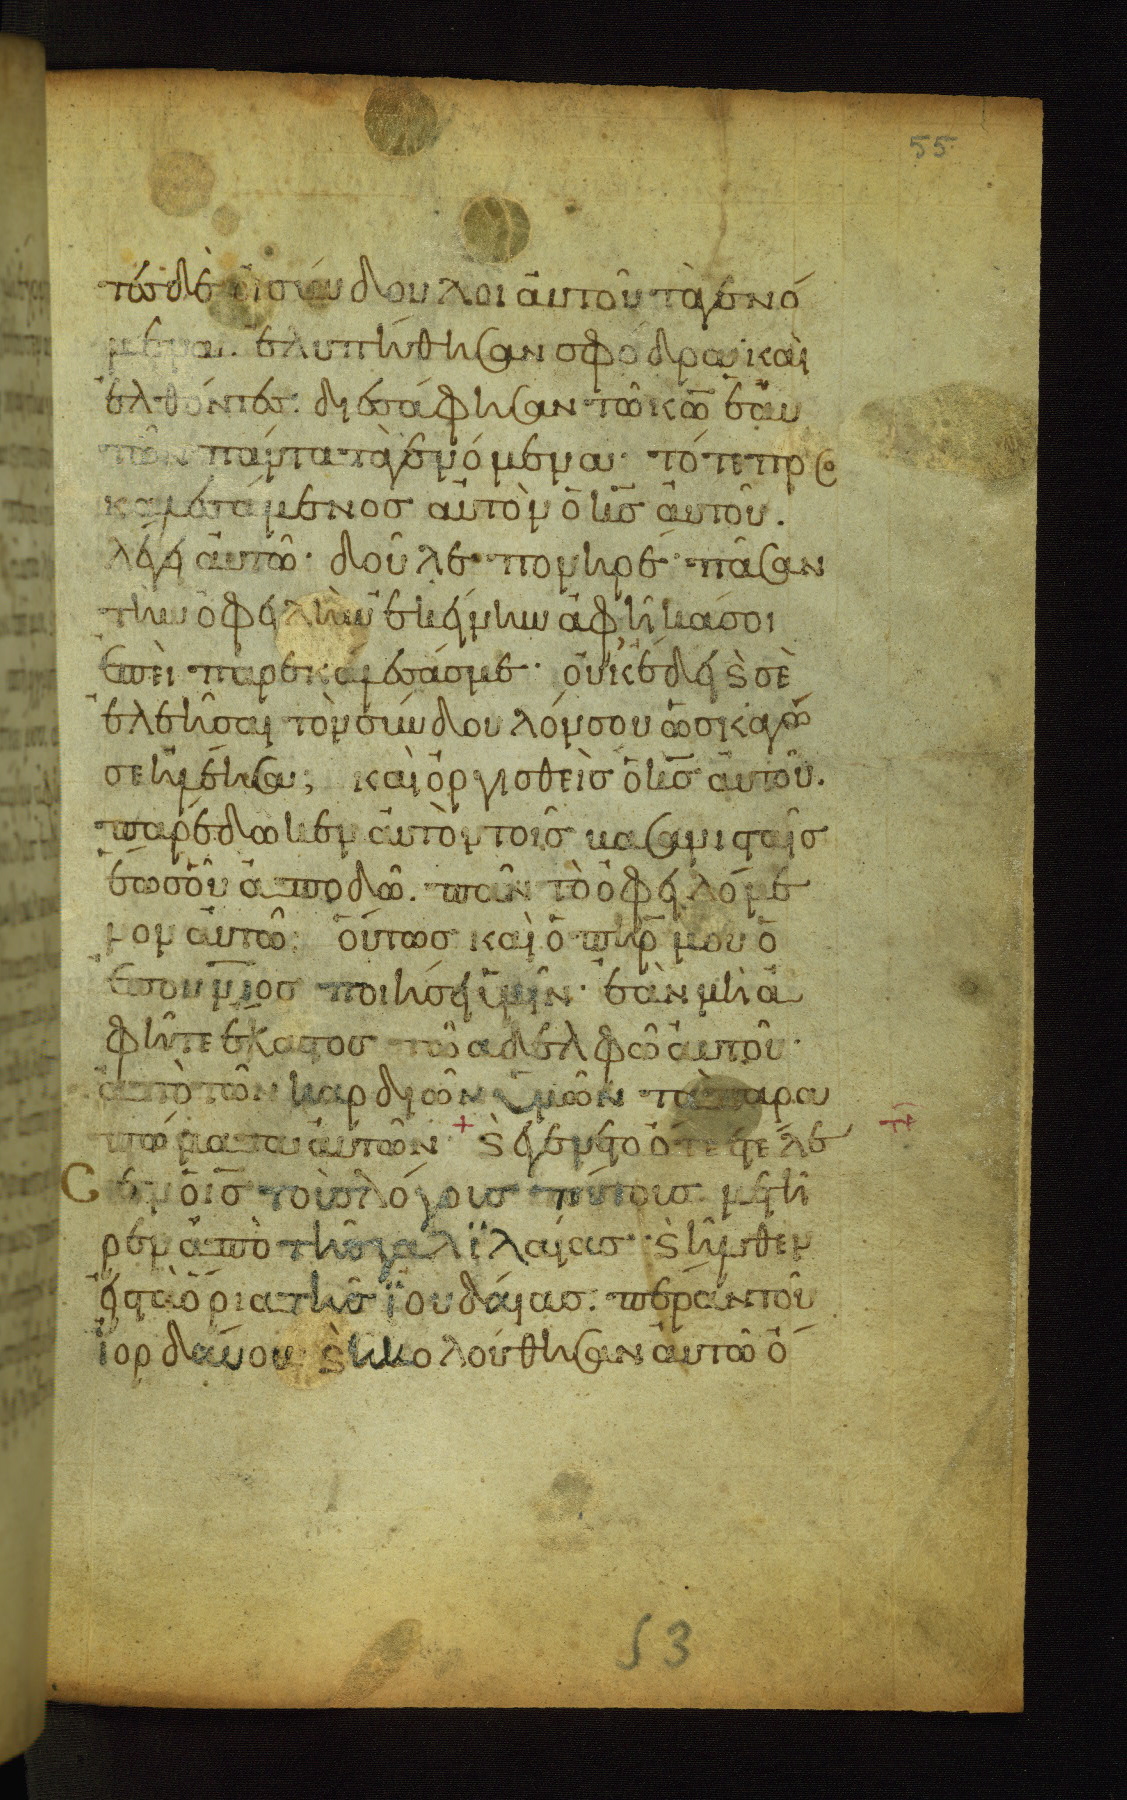 55
τες δὲ οἱ σύνδουλοι ἀυτοῦ τὰ γενό
μενα. ἐλυπήθησαν σφόδρα· καὶ
ἐλθόντες· διεσάφησαν τῶ κ̅ω̅ ἑαυ
τῶν πάντα τὰ γενόμενα· τότε προσ
καλεσάμενος αὐτὸν ὁ κ̅ς̅ ἀυτοῦ.
λέγει ἀυτῶ· δοῦλε πονηρέ· πᾶσαν
τὴν ὀφειλὴν ἐκείνην ἀφῆκά σοι
ἐπεὶ παρεκάλεσάς με· οὐκ ἔδει ϗ σὲ
ἐλεῆσαι τὸν σύνδουλόν σου ὡς καγὼ
σε ἠλέησα; καὶ ὀργισθεὶς ὁ κ̅ς̅ ἀυτοῦ.
παρέδωκεν ἀυτὸν τοῖς βασανισταῖς
ἕως οὗ ἀποδῶ. πᾶν τὸ ὀφειλόμε
νον ἀυτῶ· οὕτως καὶ ὁ π̅η̅ρ̅ μου ὁ
ἐπουράνιος ποιήσει ὑμῖν· ἐὰν μὴ ἀ
φῆτε ἕκαστος τῶ αδελφῶ ἀυτοῦ·
ἀπὸ τῶν καρδιῶν ὑμῶν τὰ παρα
πτώματα ἀυτῶν + ϗ ἐγένετο ὅτε ἐτέλε
σεν ὁ ι̅ς̅ τοὺς λόγους τούτους μετῆ
ρεν ἀπὸ τῆς γαλϊλαίας· ϗ ἦλθεν
εἰς τὰ ὅρια τῆς ϊουδαίας· πέραν τοῦ
ϊορδάνου· ϗ ἠκολούθησαν ἀυτῶ ὄ
53